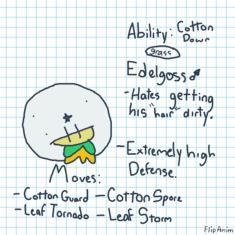 Ability: Cotton
Down
grass
Edelgoss♂
-Hates getting
his "hair" dirty.
-Extremely high
Defense.
Moves:
-Cotton Guard -Cotton Spore
-Leaf Tornado -Leaf Storm
FlipAnim